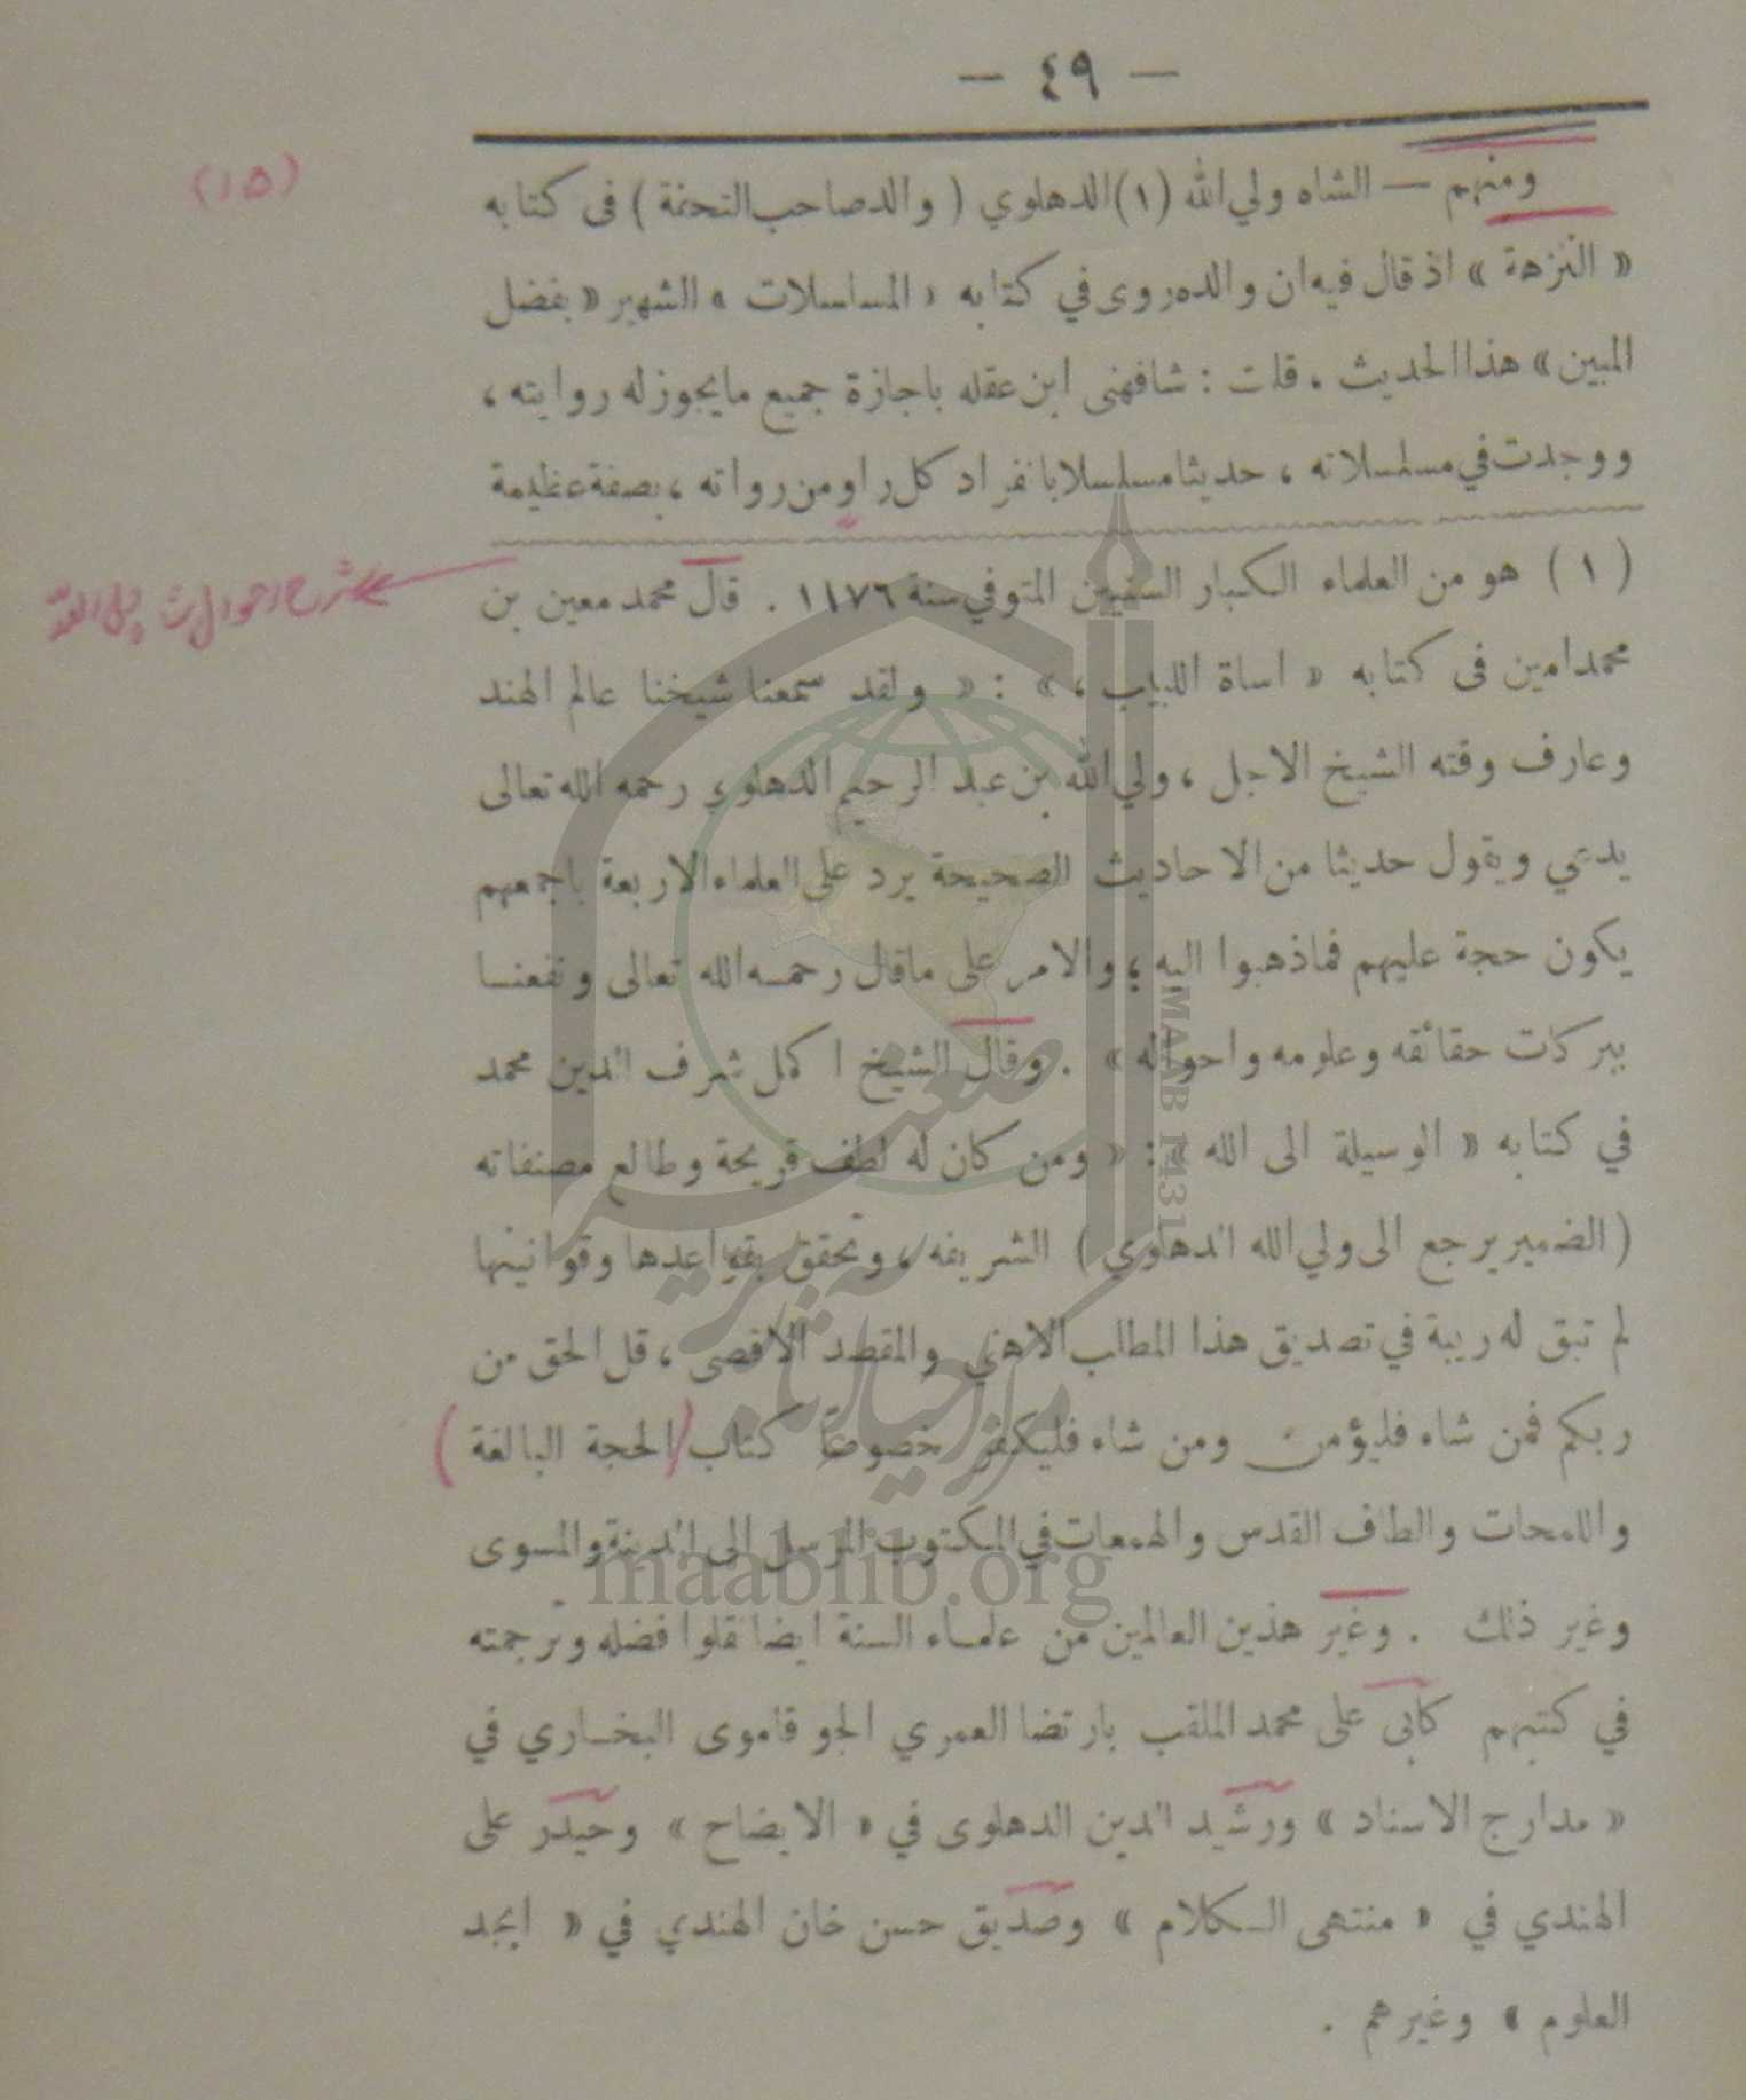 — ٤٩ —
(١٥)
ومنهم — الشاه ولي الله (١) الدهلوي ( والد صاحب التحفة ) فى كتابه
« النزهة » اذ قال فيه ان والده روى في كتابه « المسلسلات » الشهير « بفضل
المبين » هذا الحديث ، قلت : شافهنى ابن عقله باجازة جميع ما يجوز له روايته ،
ووجدت في مسلسلاته ، حديثا مسلسلا بانفراد كل راو من رواته ، بصفة عظيمة
( ١ ) هو من العلماء الكبار السنيين المتوفي سنة ١١٧٦ . قال محمد معين بن
محمد امين فى كتابه « اساة اللبيب ، » : « ولقد سمعنا شيخنا عالم الهند
وعارف وقته الشيخ الاجل ، ولي الله بن عبد الرحيم الدهلوي رحمه الله تعالى
يدعي ويقول حديثا من الاحاديث الصحيحة يرد على العلماء الاربعة باجمعهم
يكون حجة عليهم فماذهبوا اليه ؛ والامر على ماقال رحمه الله تعالى ونفعنا
ببركات حقائقه وعلومه واحواله » . وقال الشيخ اكمل شرف الدين محمد
في كتابه « الوسيلة الى الله » : « ومن كان له لطف قريحة وطالع مصنفاته
( الضمير يرجع الى ولي الله الدهلوي ) الشريفه ، وتحقق بقواعدها وقوانينها
لم تبق له ريبة في تصديق هذا المطلب الاهنى والمقصد الاقصى ، قل الحق من
ربكم فمن شاء فليؤمن ومن شاء فليكفر خصوصاً كتاب (الحجة البالغة )
واللمحات والطاف القدس والهمعات في المكتوب المرسل الى المدينة والمسوى
وغير ذلك . وغير هذين العالمين من علماء السنة ايضا نقلوا فضله وترجمته
في كتبهم كابى على محمد الملقب بارتضا العمري الجوقاموى البخاري في
« مدارج الاسناد » ورشيد الدين الدهلوى في « الايضاح » وحيدر على
الهندي في « منتهى الكلام » وصديق حسن خان الهندي في « ابجد
العلوم » وغيرهم .
MAAB 1431
maablib.org